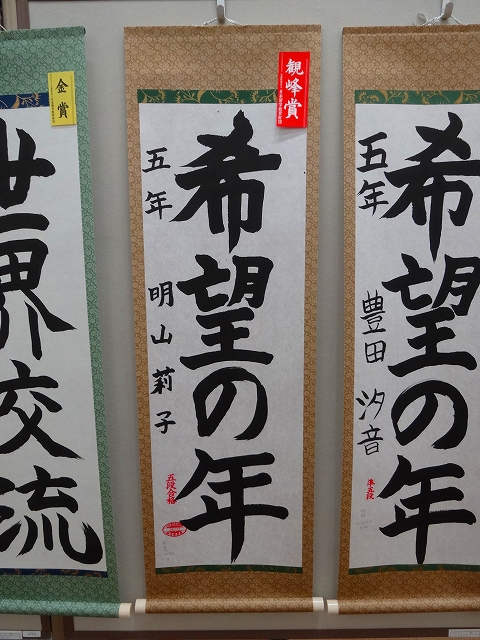 希望の年
五年
豊田汐音
準五段
観峰賞
希望の年
五年
明山莉子
五段合格
金賞
世界交流